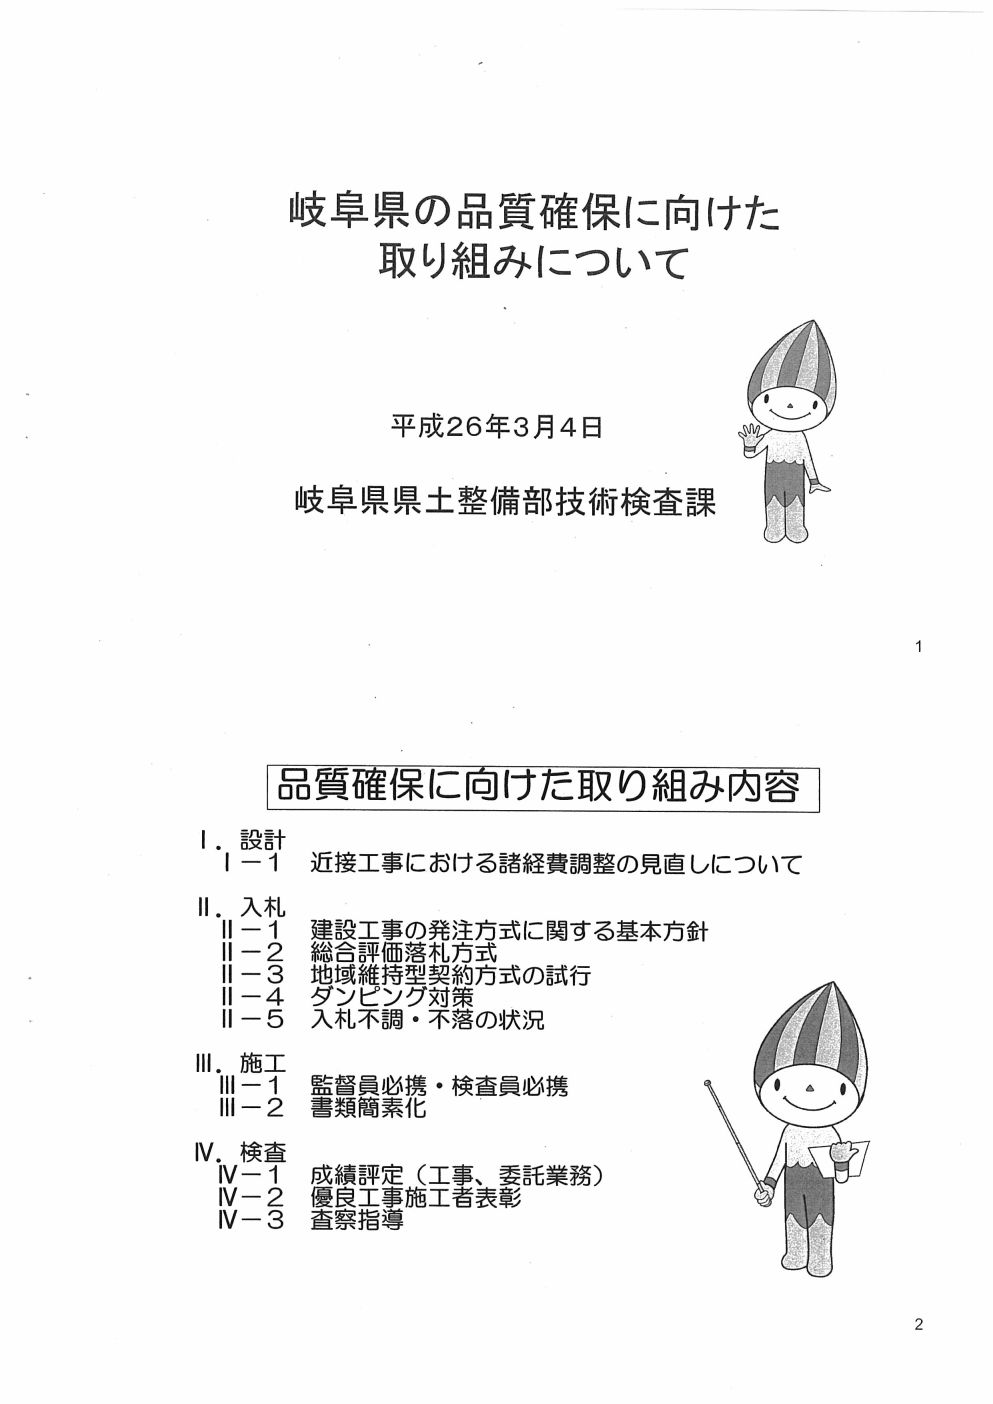 岐阜県の品質確保に向けた
取り組みについて
平成26年3月4日
岐阜県県土整備部技術検査課
1
品質確保に向けた取り組み内容
Ⅰ．設計
Ⅰ－1　近接工事における諸経費調整の見直しについて
Ⅱ．入札
Ⅱ－1　建設工事の発注方式に関する基本方針
Ⅱ－2　総合評価落札方式
Ⅱ－3　地域維持型契約方式の試行
Ⅱ－4　ダンピング対策
Ⅱ－5　入札不調・不落の状況
Ⅲ．施工
Ⅲ－1　監督員必携・検査員必携
Ⅲ－2　書類簡素化
Ⅳ．検査
Ⅳ－1　成績評定（工事、委託業務）
Ⅳ－2　優良工事施工者表彰
Ⅳ－3　査察指導
2